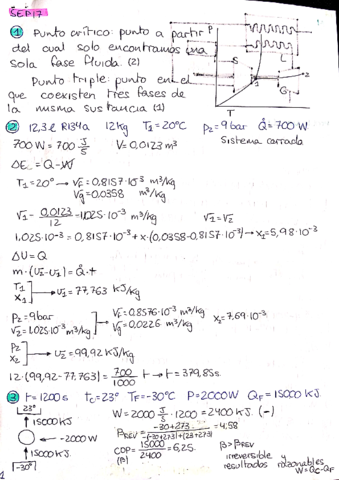 SEP17
① Punto crítico: punto a partir
del cual solo encontramos una
sola fase fluida. (2)
Punto triple: punto en el
que coexisten tres fases de
la misma sustancia (1)
P
S
L
G
T
1
2
② 12,3 l R134a 12kg T₁=20°C p₂=9bar Q̇=700W
700W=700 J/s V=0,0123m³ Sistema cerrado
ΔE = Q-W
T₁=20° → Vf=0,8157·10⁻³ m³/kg
Vg=0,0358 m³/kg
V₁=0,0123/12=1,025·10⁻³ m³/kg V₁=V₂
1,025·10⁻³=0,8157·10⁻³+x·(0,0358-0,8157·10⁻³)→x₁=5,98·10⁻³
ΔU=Q
m·(U₂-U₁)=Q̇·t
T₁
x₁ → U₁=77,763 kJ/kg
P₂=9bar
V₂=1,025·10⁻³m³/kg → Vf=0,8576·10⁻³ m³/kg
Vg=0,0226 m³/kg x₂=7,69·10⁻³
P₂
x₂ → U₂=99,92 kJ/kg
12·(99,92-77,763)=700/1000 t → t=379,85s
③ t=1200s tc=23° TF=-30°C P=2000W QF=15000KJ
23°
↑15000KJ
← -2000W
↑15000KJ
-30°
W=2000 J/s·1200=2400KJ (-)
βREV=-30+273/-(-30+273)+(23+273)=4,58
COP=15000/2400=6,25
(β)
β>βREV
irreversible y
resultados razonables
W=QC-QF
1